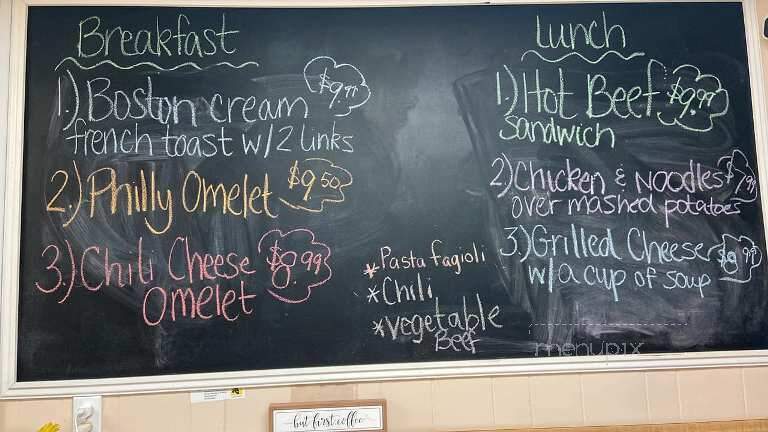 Breakfast
1.) Boston cream $9.99
french toast w/2 links
2.) Philly Omelet $9.50
3.) Chili Cheese $8.99
Omelet
*Pasta fagioli
*Chili
*vegetable
Beef
Lunch
1.) Hot Beef $9.99
sandwich
2.) Chicken & Noodles $7.99
over mashed potatoes
3.) Grilled Cheese $8.99
w/a cup of soup
menupix
but first coffee